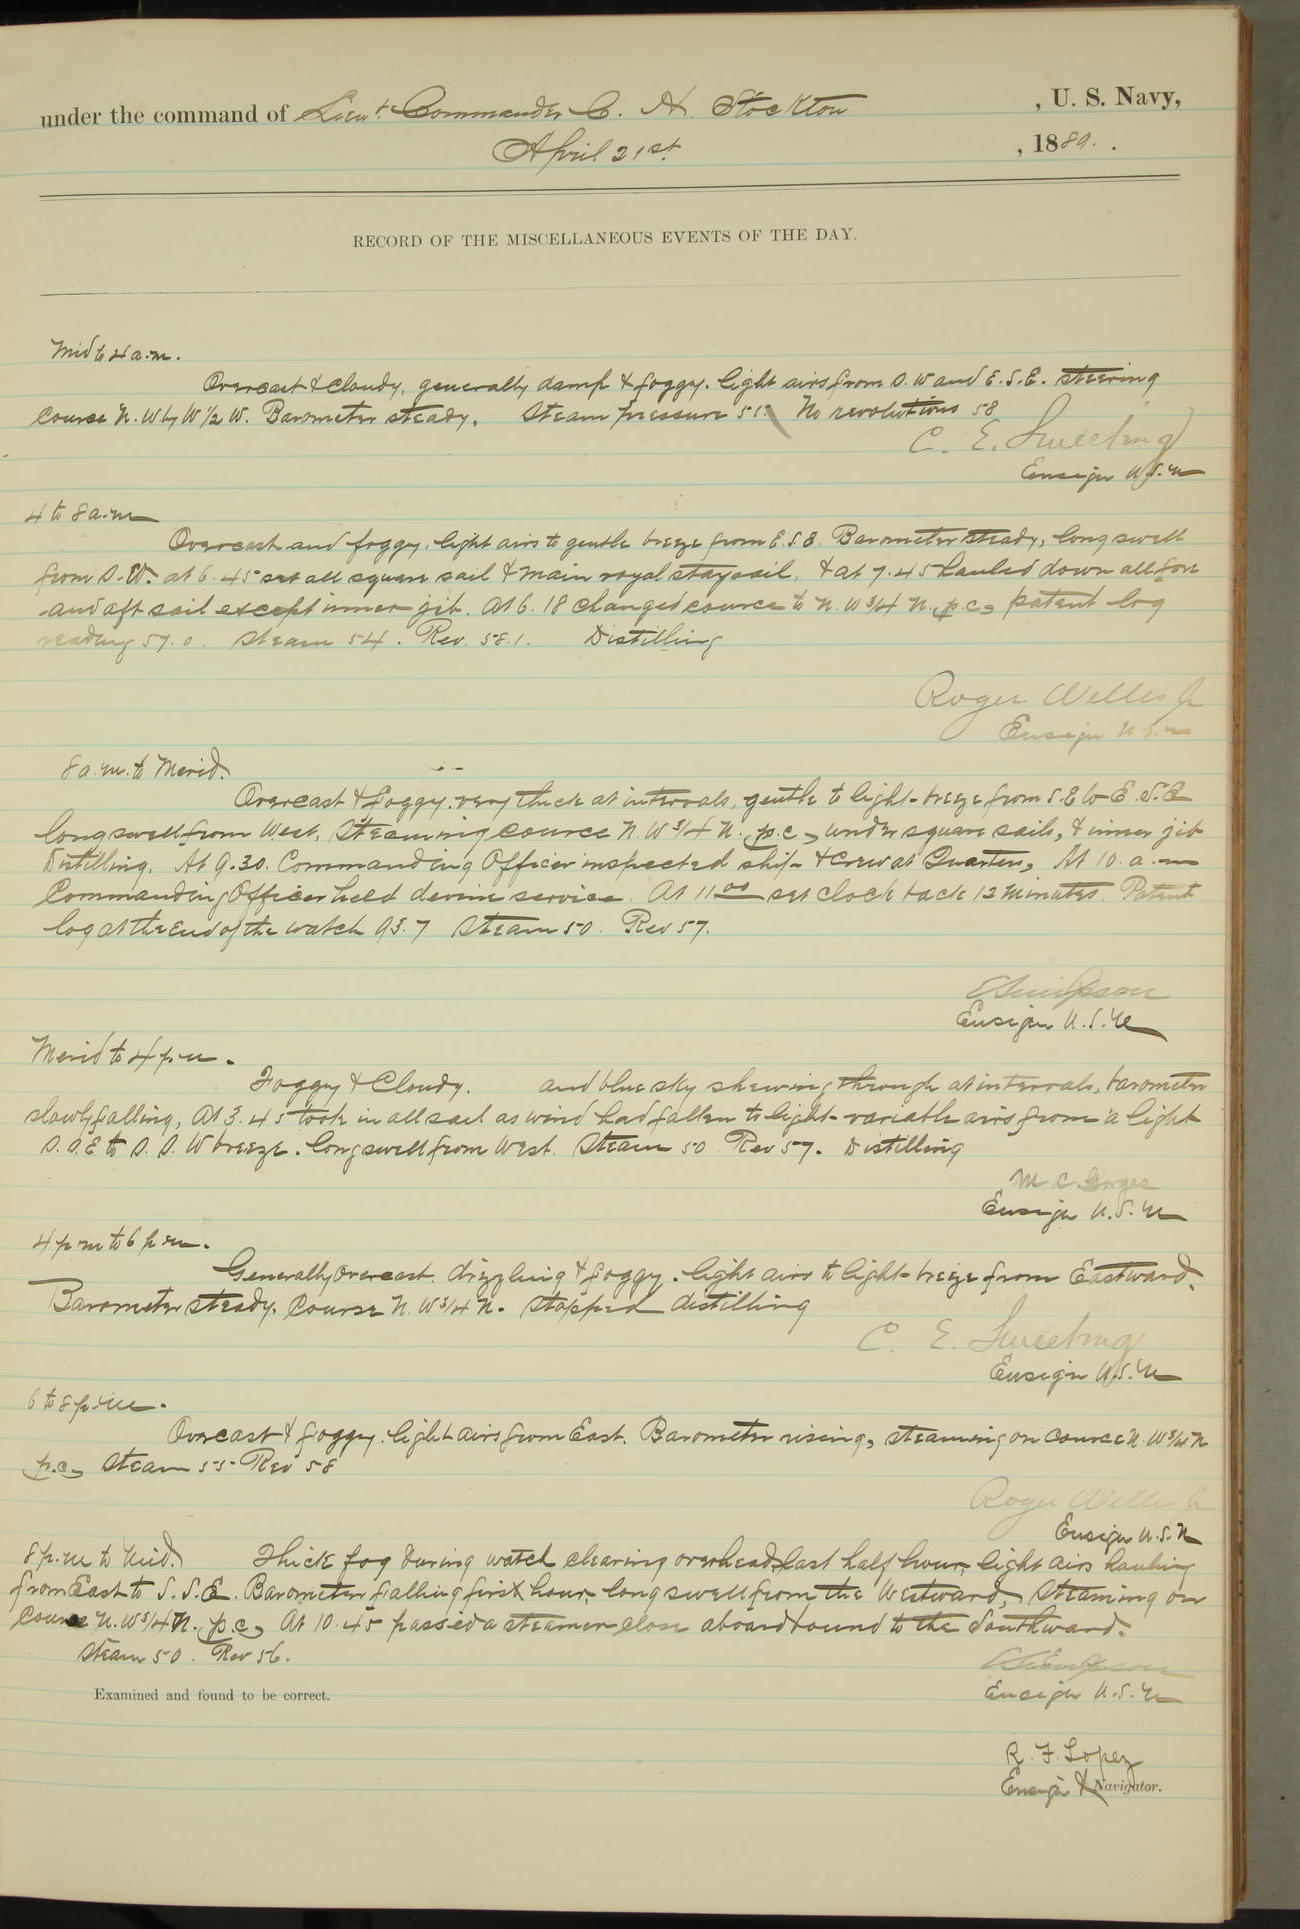 under the command of Lieut. Commander C. H. Stockton, U. S. Navy,
April 21st, 1889.
RECORD OF THE MISCELLANEOUS EVENTS OF THE DAY.
Mid to 4 a.m.
Overcast & cloudy, generally damp & foggy. light airs from S. W and E. S. E. steering
course N. W by W 1/2 W. Barometer steady. Steam pressure 51. No revolutions 58
C. E. Sweeting
Ensign U.S.N
4 to 8 a.m
Overcast and foggy, light airs to gentle breeze from E. S. E. Barometer steady, long swell
from S. W. at 6.45 set all square sail & main royal staysail, & at 7.45 hauled down all fore
and aft sail except inner jib. At 6.18 changed course to N. W 3/4 N. p.c, patent log
reading 57.0. Steam 54. Rev. 58.1. Distilling
Roger Welles Jr
Ensign U.S.N
8 a.m. to Merid.
Overcast & foggy. very thick at intervals, gentle to light breeze from S. E to E. S. E
long swell from West. Steaming course N. W 3/4 N. p.c, under square sails, & inner jib
Distilling. At 9.30. Commanding Officer inspected ship & crew at Quarters, At 10. a.m
Commanding Officer held devine service. At 11 00 set clock back 12 minutes. Patent
log at the end of the watch 93.7 Steam 50. Rev 57.
E Simpson
Ensign U.S.N
Merid to 4 p.m.
Foggy & Cloudy. and blue sky shewing through at intervals, barometer
slowly falling, At 3.45 took in all sail as wind had fallen to light variable airs from a light
S. S. E to S. S. W breeze. long swell from West. Steam 50 Rev 57. Distilling
M C Gorgas
Ensign U.S.N
4 p m to 6 p m.
Generally overcast drizzling & foggy. light airs to light breeze from Eastward.
Barometer steady. Course N. W 3/4 N. Stopped distilling
C. E. Sweeting
Ensign U.S.N
6 to 8 p.m.
Overcast & foggy. light airs from East. Barometer rising, steaming on course N. W 3/4 N
p.c, Steam 55 Rev 58
Roger Welles Jr
Ensign U.S.N
8 p.m to Mid. Thick fog during watch clearing overhead last half hour, light airs hauling
from East to S. S. E. Barometer falling first hour, long swell from the Westward, Steaming on
course N. W 3/4 N. p.c, At 10.45 passed a steamer close aboard bound to the Southward.
Steam 50. Rev 56.
E Simpson
Examined and found to be correct.
Ensign U.S.N
R. F. Lopez
Ensign & Navigator.